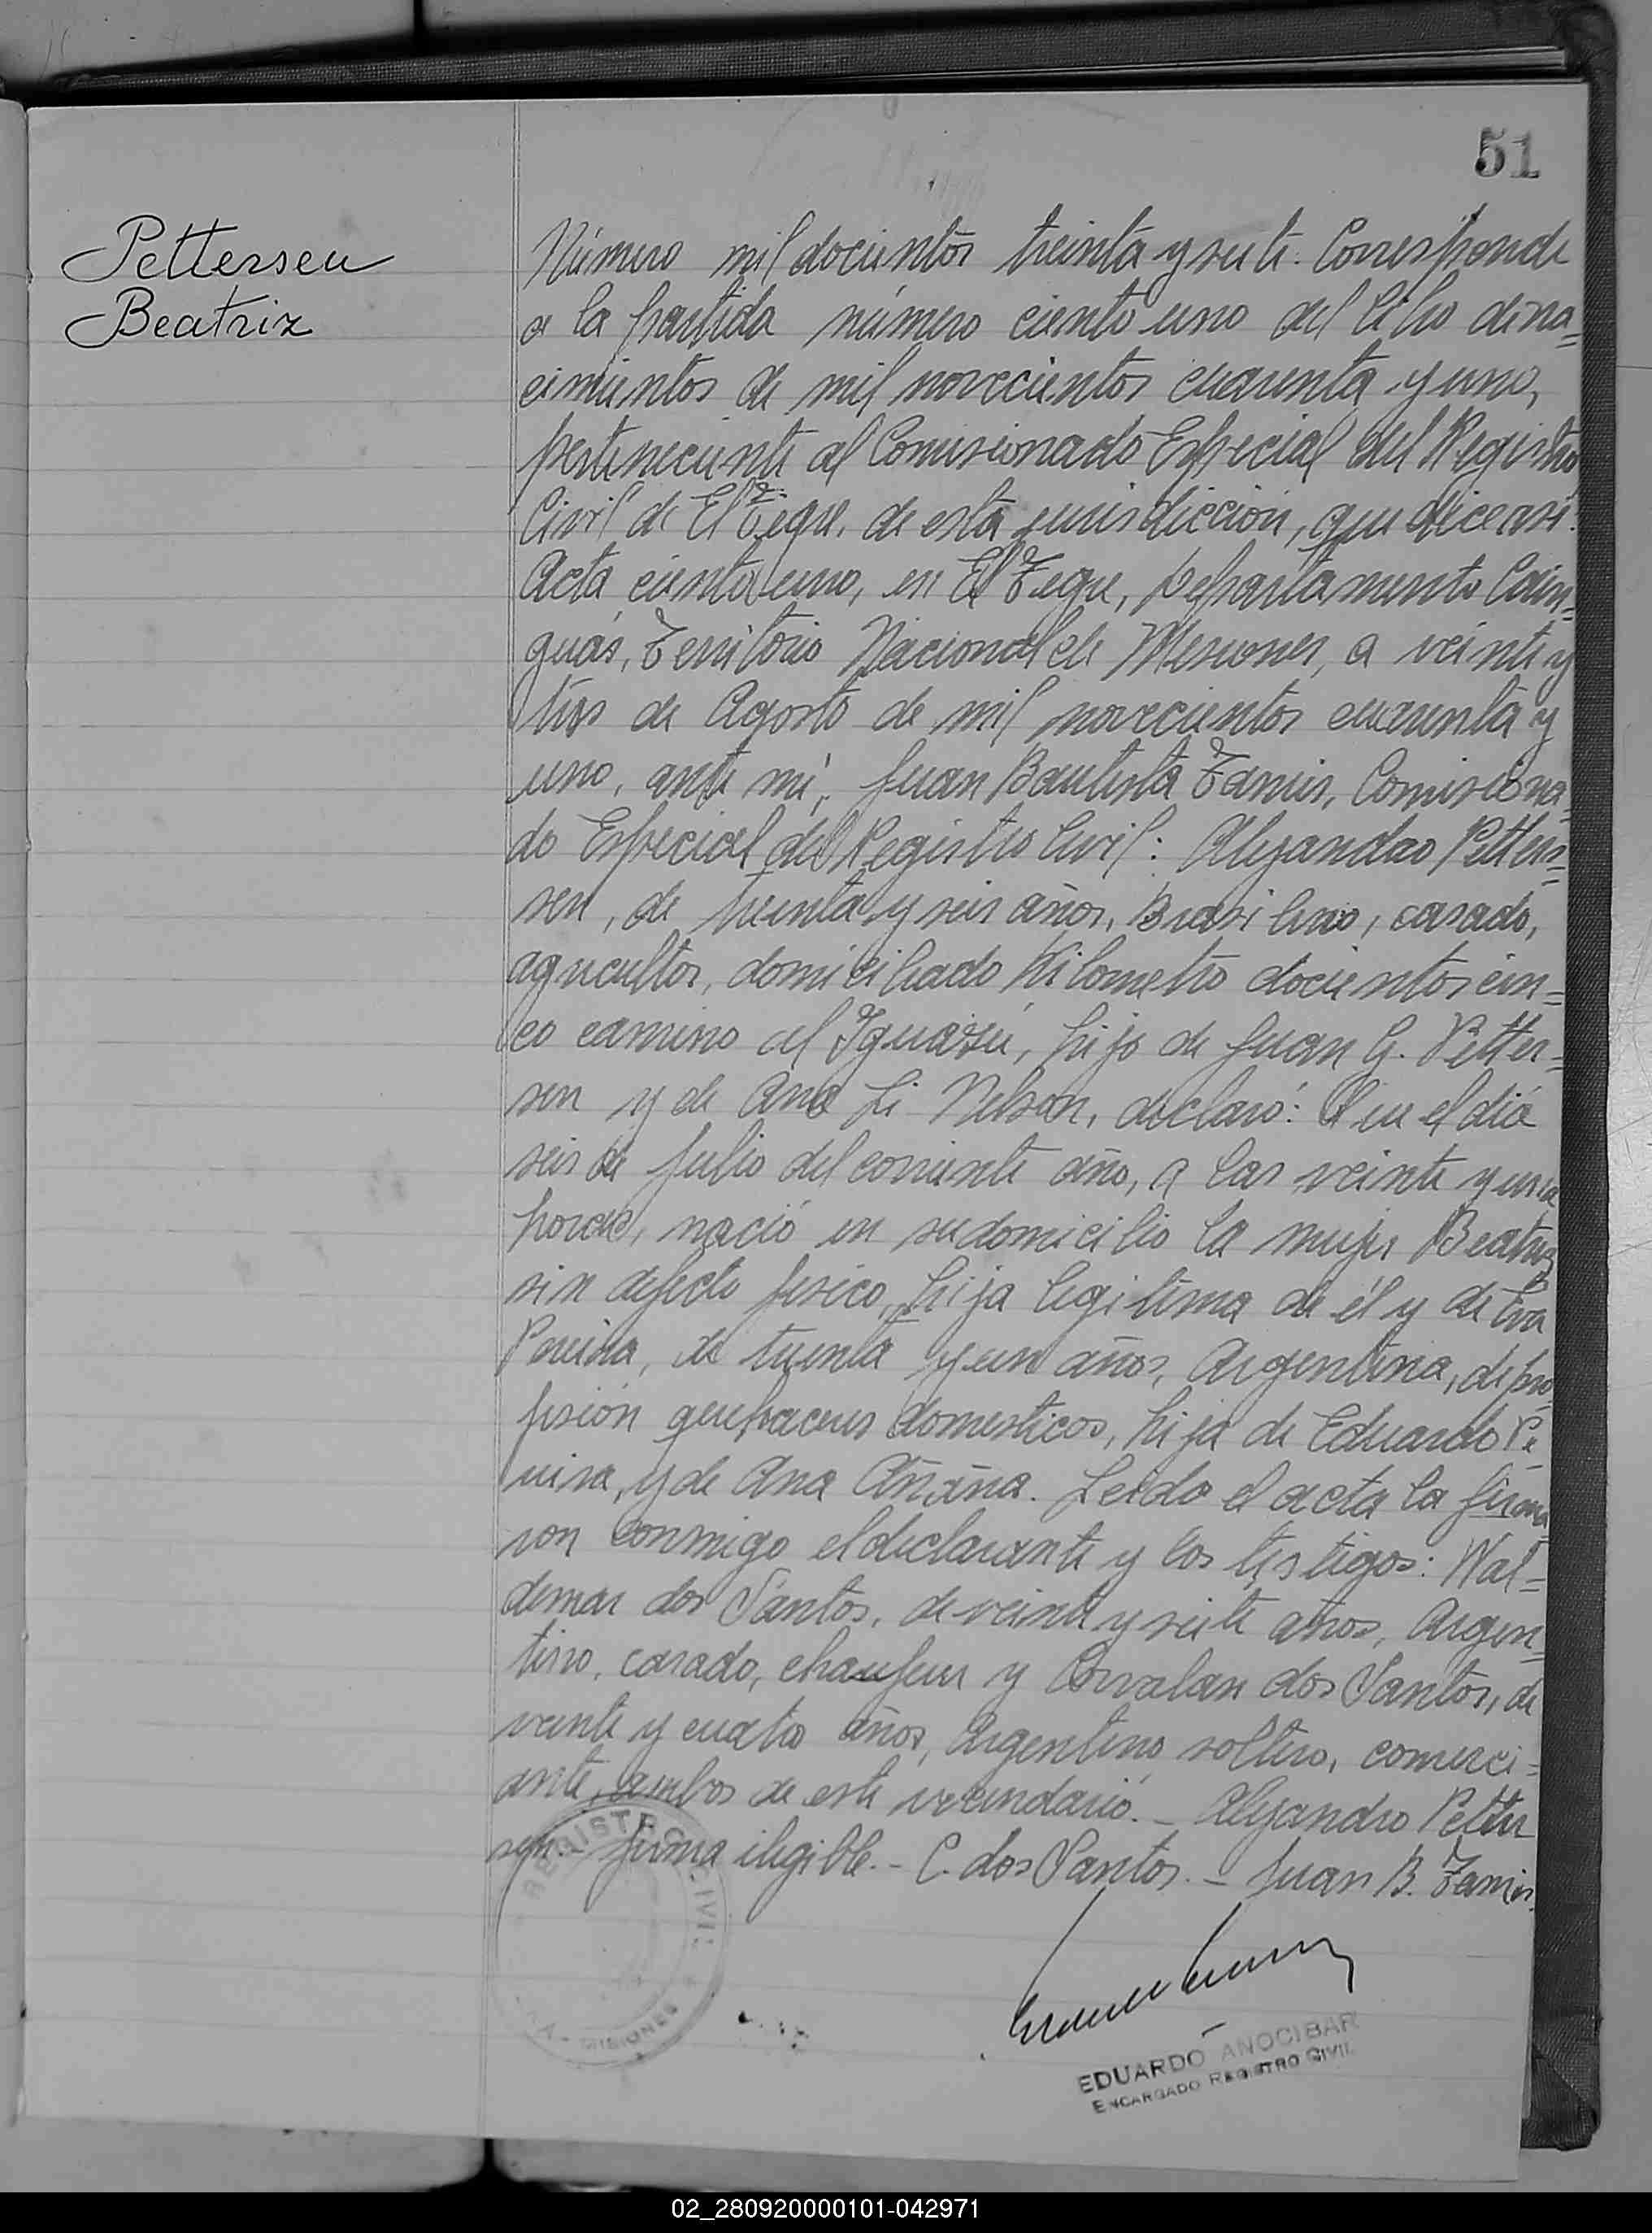 51
Pettersen
Beatriz
Número mil docientos treinta y siete. Corresponde
a la partida número ciento uno del libro de na=
cimientos de mil novecientos cuarenta y uno,
perteneciente al Comisionado Especial del Registro
Civil de El Tegue. de esta jurisdicción, que dice asi:
Acta ciento uno, en El Tegue, Departamento Cain=
guás, Territorio Nacional de Misiones, a veinte y
tres de Agosto de mil novecientos cuarenta y
uno, ante mí, Juan Bautista Zamis, Comisiona=
do Especial del Registro Civil: Alejandro Petter=
sen, de treinta y seis años, Brasilero, casado,
agricultor, domiciliado Kilometro docientos cin=
co camino al Iguazú, hijo de Juan G. Petter=
sen y de Ana Li Nelson, declaró: Que el diá
seis de Julio del corriente año, a las veinte y una
horas, nació en su domicilio la mujer Beatriz
sin defecto fisico, hija legitima de él y de Eva
Pereira, de treinta y un años, Argentina, de pro
fesión quehaceres domesticos, hija de Eduardo Pe
reira, y de Ana Añaña. Leido el acta la firma
ron conmigo el declarante y los testigos: Wal=
demar dos Santos, de veinte y siete años, Argen=
tino, casado, chaufeur y Corvalan dos Santos, de
veinte y cuatro años, Argentino, soltero, comerci=
ante, ambos de este vecindario. - Alejandro Petter
sen - firma ilegible. - C. dos Santos. - Juan B. Zamis.
REGISTRO CIVIL
MISIONES
EDUARDO ANOCIBAR
ENCARGADO REGISTRO CIVIL
02_280920000101-042971